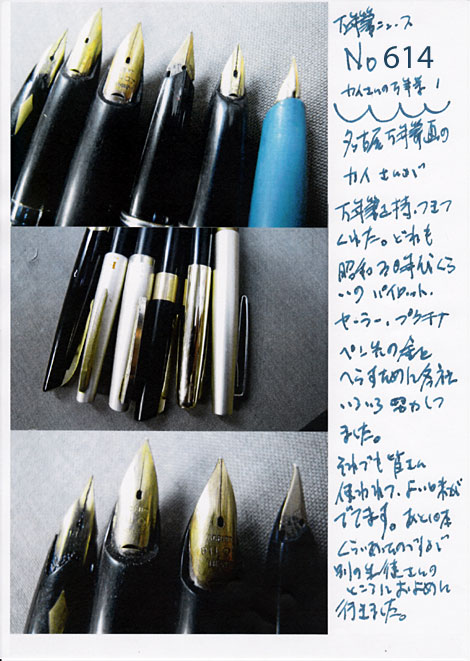 万年筆ニュース
No 614
カイさんの万年筆！
名古屋万年筆画の
カイさんが
万年筆を持ってきて
くれた。どれも
昭和 年代くら
いの パイロット、
セーラー、プラチナ
ペン先の金を
へらすために各社
いろいろ努力して
ました。
それでも皆さん
使われて、よい味が
でてます。あと10本
くらいあったのですが
別の生徒さんの
ところにおよめに
行きました。